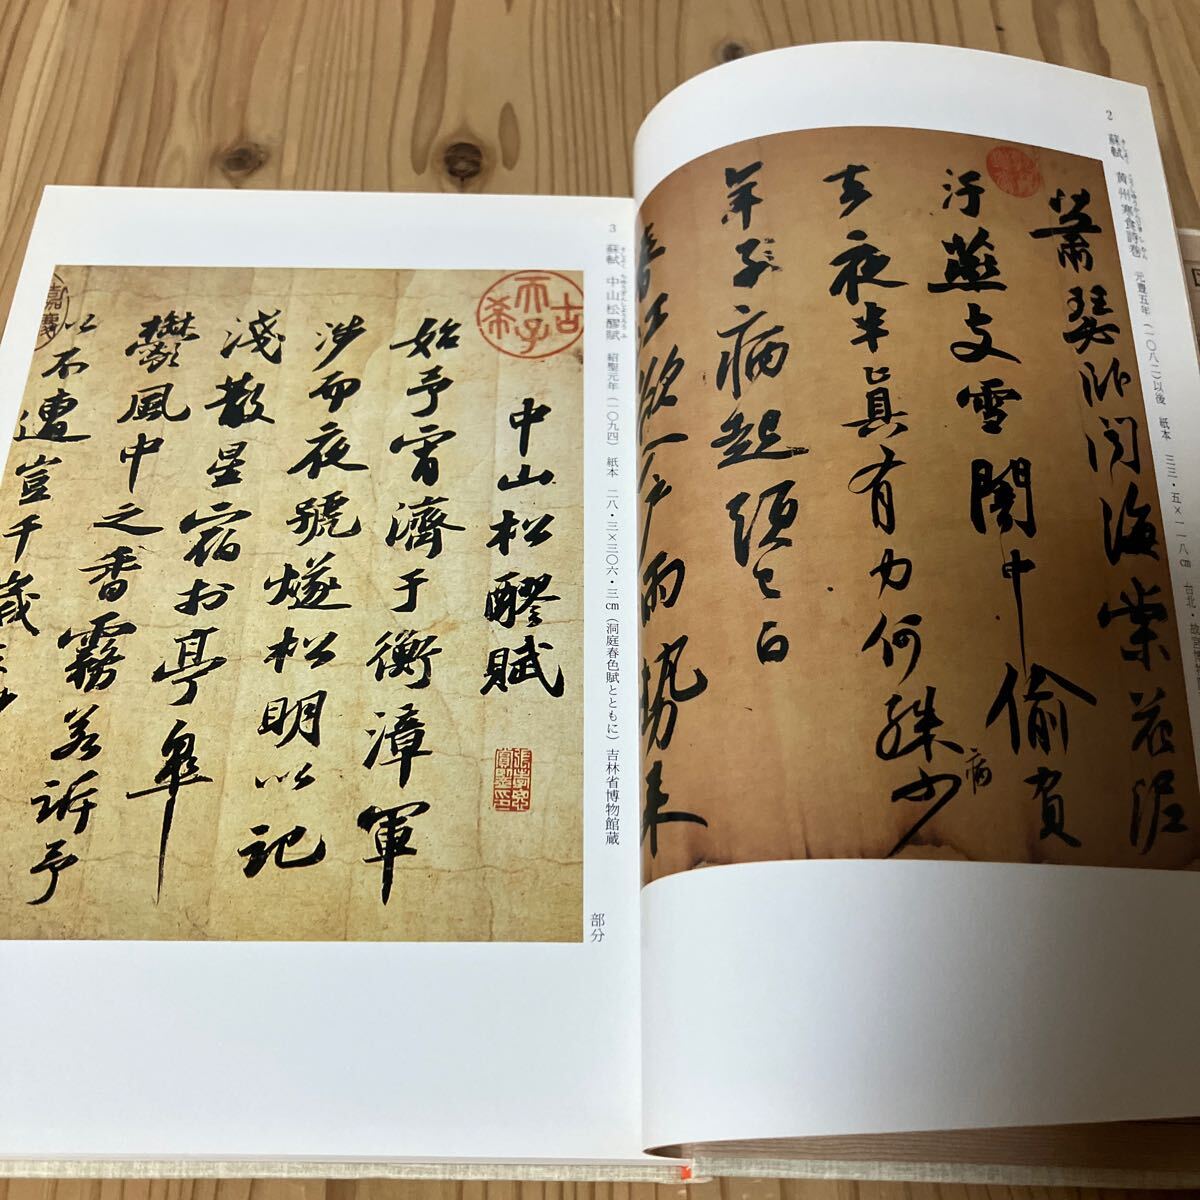 2 蘇軾 黄州寒食詩巻 元豊五年(一〇八二)以後 紙本 三三・五×一一八cm 台北・
蕭瑟卧聞海棠花泥
汙燕支雪闇中偷負
去夜半真有力何殊少
病
年子病起須已白
春江欲入戶雨勢來
3 蘇軾 中山松醪賦 紹聖元年(一〇九四) 紙本 二八・三×三〇六・三cm (洞庭春色賦とともに) 吉林省博物館蔵
部分
古希天子
中山松醪賦
始予宵濟于衡漳軍
涉而夜號燧松明以記
淺散星宿於亭皋
鬱風中之香霧若訴予
以不遭豈千歲